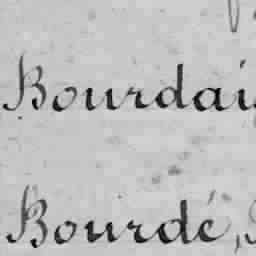 Bourdai
Bourdé,